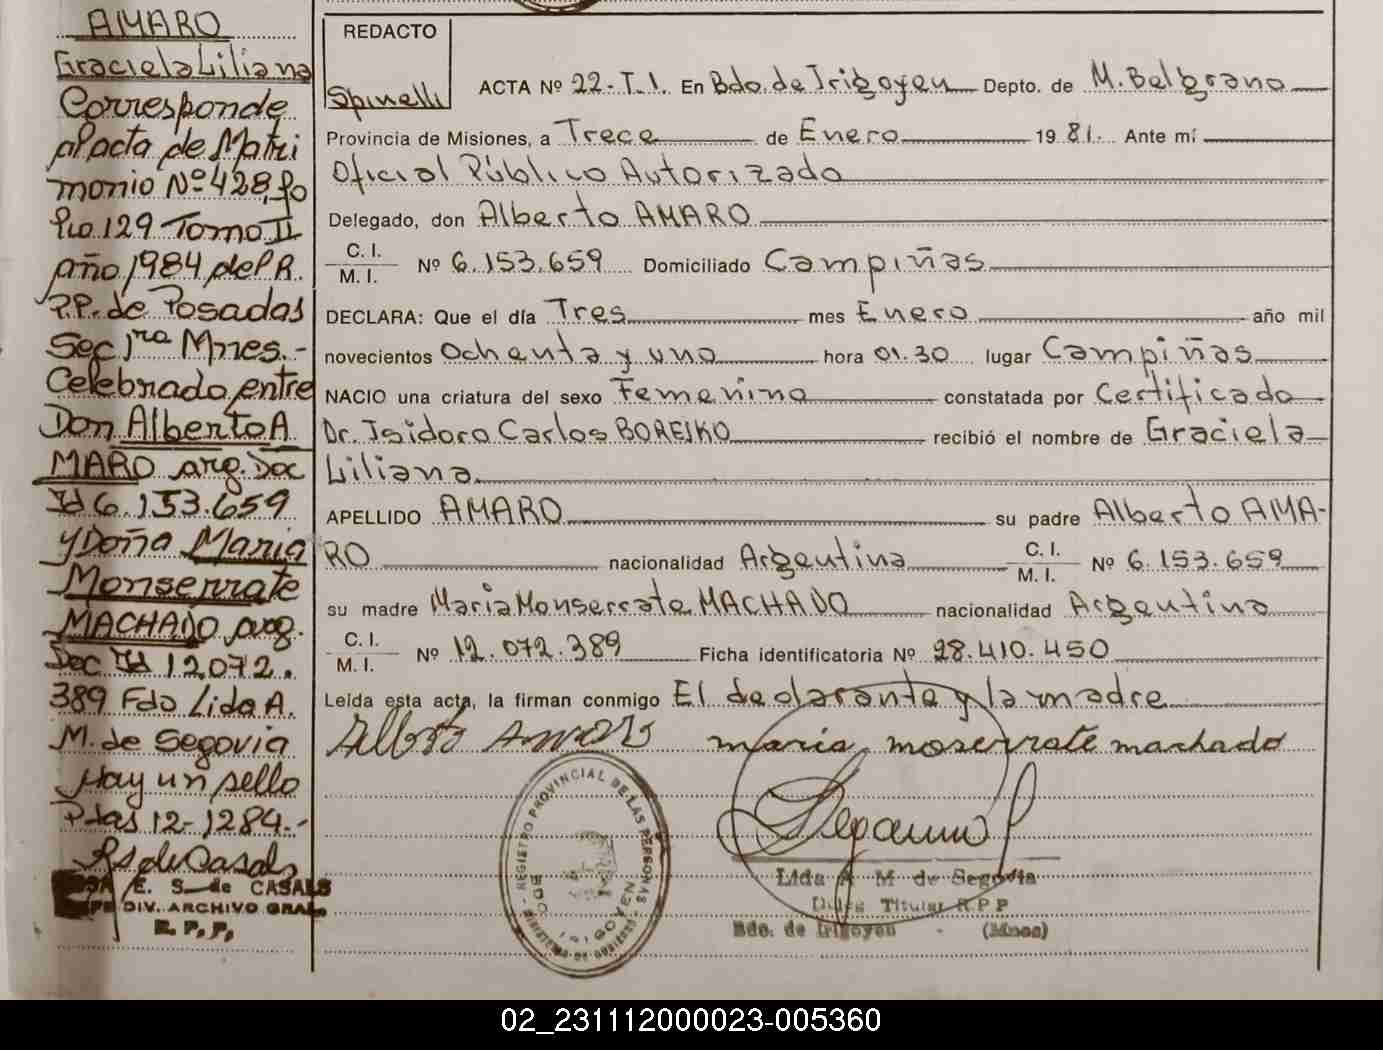 AMARO
Graciela Liliana
Corresponde
al acta de Matri
monio Nº 428, fo
lio 129 Tomo II
año 1984 del R.
P.P. de Posadas
Sec 1ra Mnes.-
Celebrado entre
Don Alberto A
MARO arg. Doc
Id 6.153.659
y Doña Maria
Monserrate
MACHADO arg.
Doc Id 12.072.
389 Fdo Lida A.
M. de Segovia
Hay un sello
Pdas 12-1284.-
RS de Casals
E. S. de CASALS
DIV. ARCHIVO GRAL.
R. P. P.
REDACTO
Spinelli
ACTA Nº 22-T.I. En Bdo. de Irigoyen Depto. de M. Belgrano
Provincia de Misiones, a Trece de Enero 1981. Ante mí
Oficial Público Autorizado
Delegado, don Alberto AMARO
C. I.
M. I. Nº 6.153.659 Domiciliado Campiñas
DECLARA: Que el día Tres mes Enero año mil
novecientos Ochenta y uno hora 01.30 lugar Campiñas
NACIO una criatura del sexo Femenino constatada por Certificado
Dr. Isidoro Carlos BOREJKO recibió el nombre de Graciela
Liliana.
APELLIDO AMARO su padre Alberto AMA-
RO nacionalidad Argentina C. I. M. I. Nº 6.153.659
su madre Maria Monserrate MACHADO nacionalidad Argentina
C. I.
M. I. Nº 12.072.389 Ficha identificatoria Nº 28.410.450
Leída esta acta, la firman conmigo El declarante y la madre
Alberto Amaro maria moserrate machado
REGISTRO PROVINCIAL DE LAS PERSONAS
BDO. IRIGOYEN
Lida A M de Segovia
Deleg Titular R.P.P
Bdo. de Irigoyen - (Mnes)
02_231112000023-005360